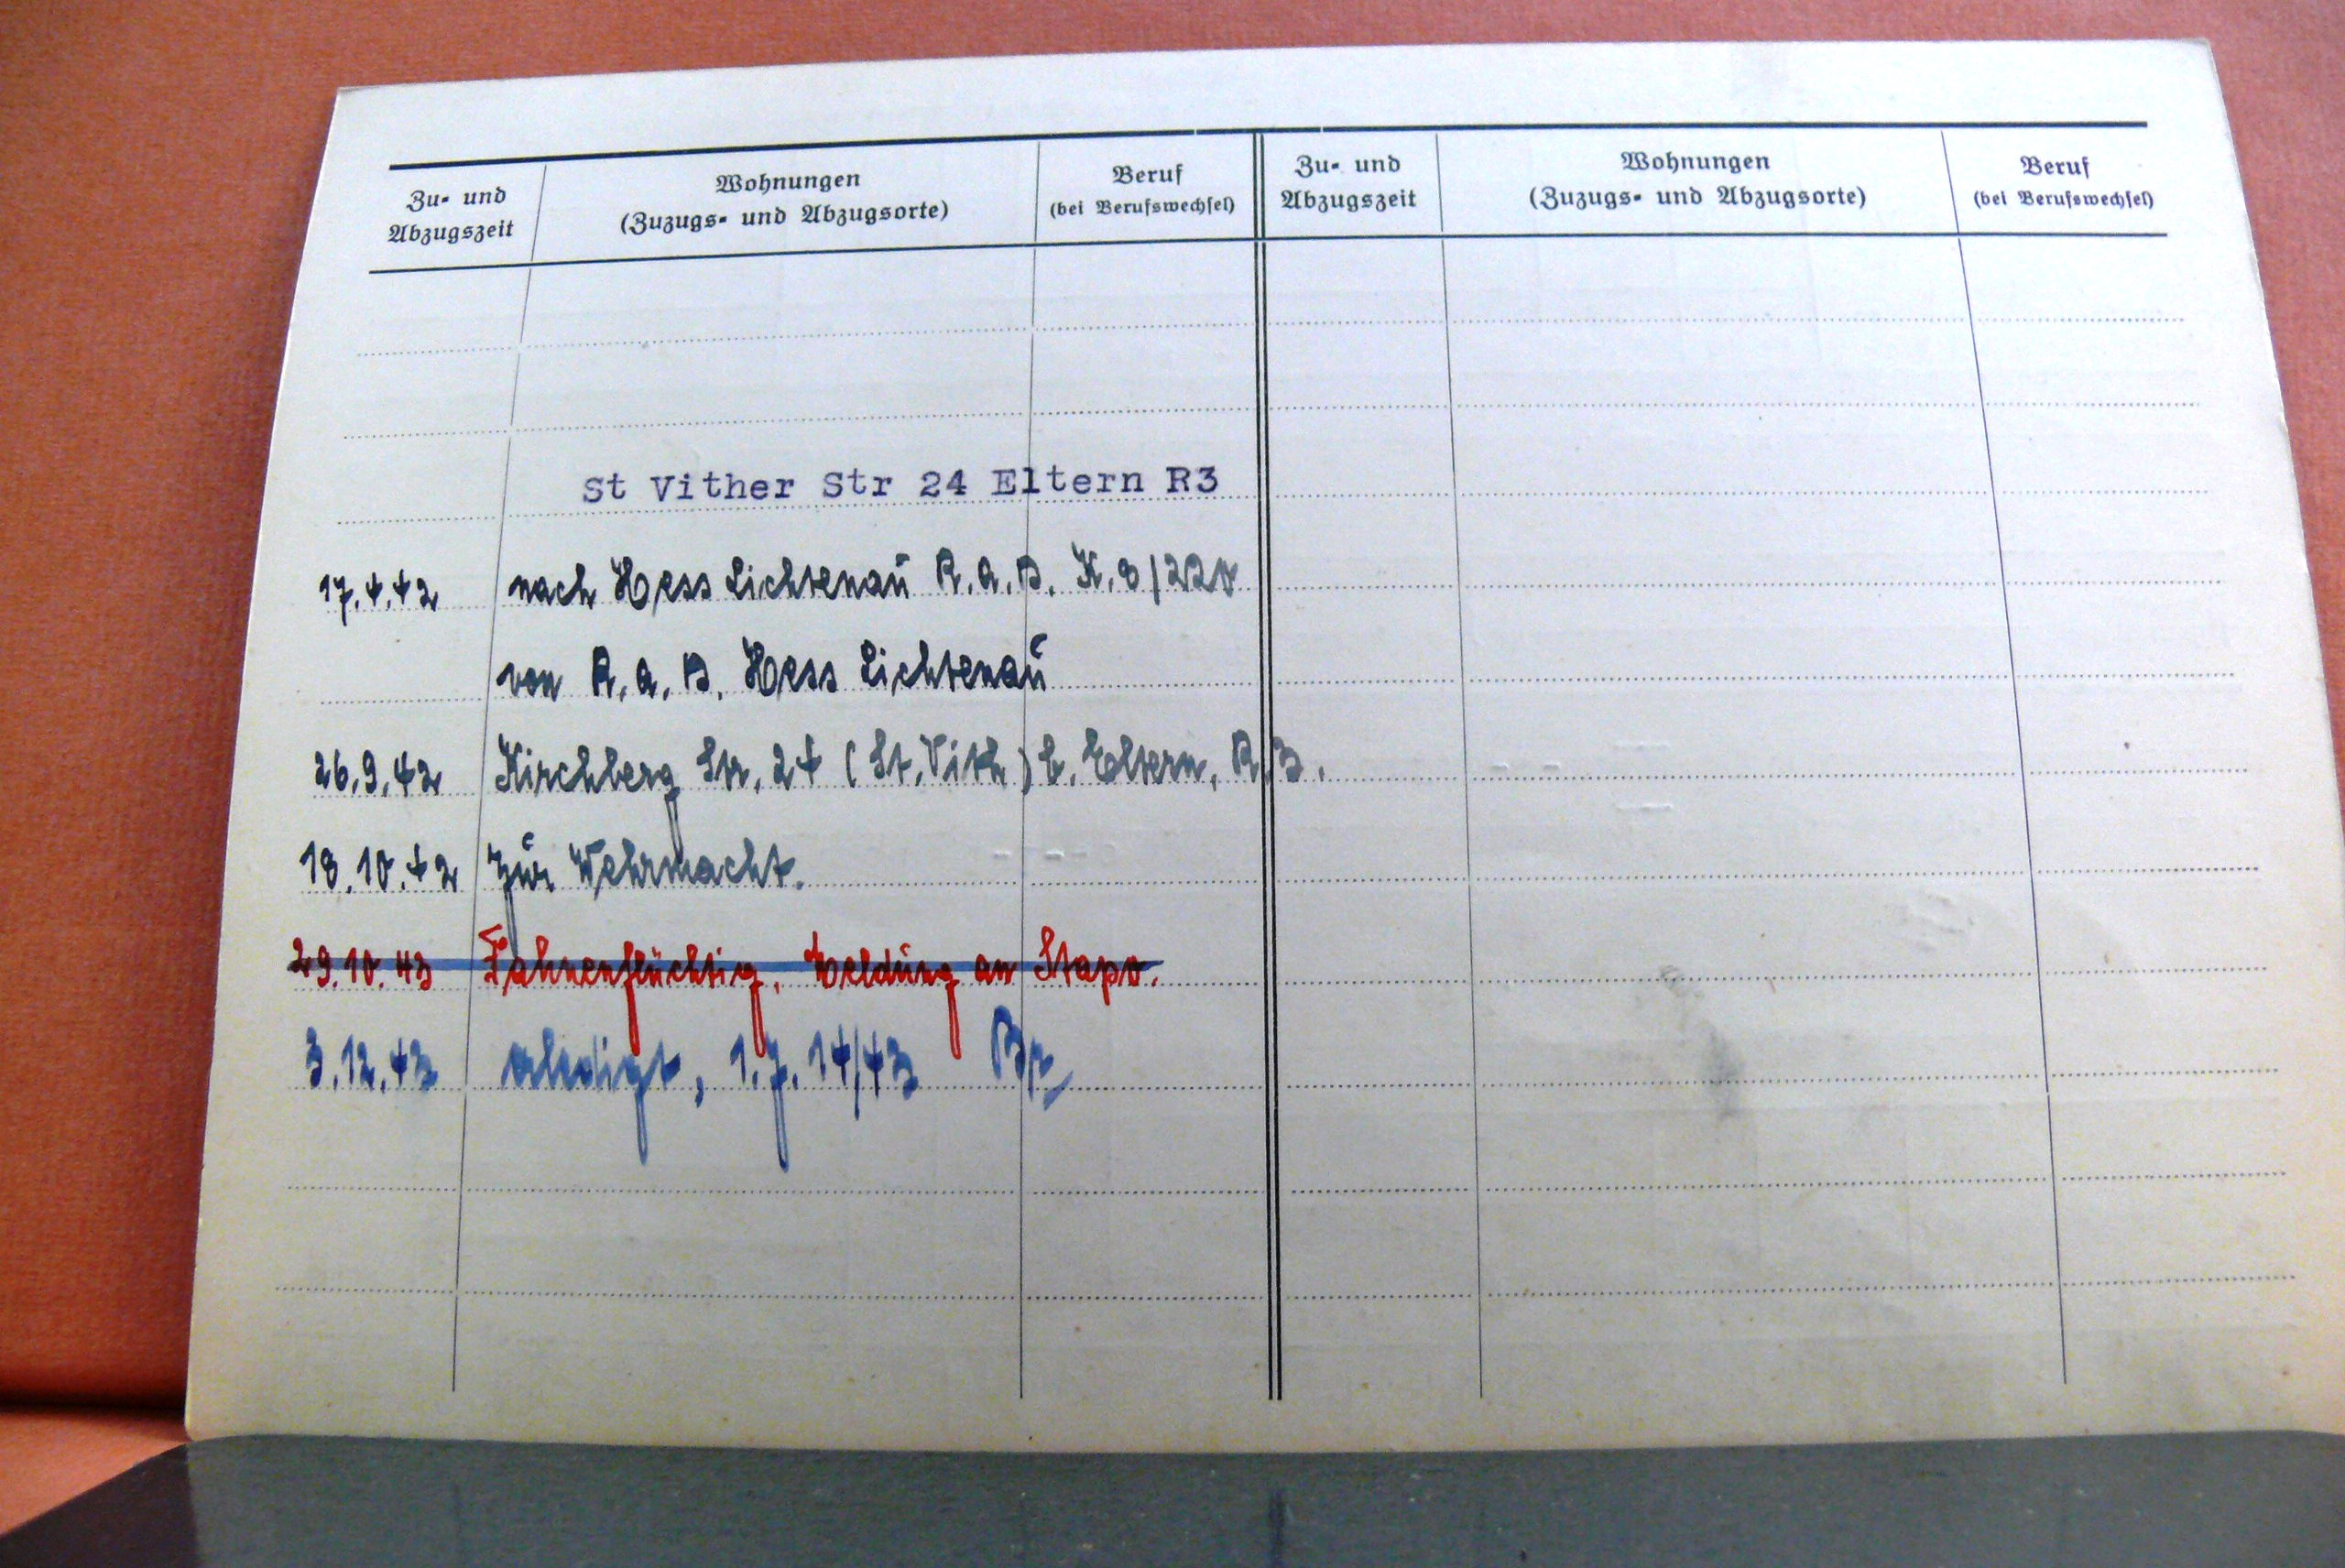 Zu- und Abzugszeit
Wohnungen
(Zuzugs- und Abzugsorte)
Beruf
(bei Berufswechsel)
Zu- und Abzugszeit
Wohnungen
(Zuzugs- und Abzugsorte)
Beruf
(bei Berufswechsel)
St Vither Str 24 Eltern R3
17.4.42 nach Hess Lichtenau R.A.D. K.8/220
von R.A.D. Hess Lichtenau
26.9.42 Kirchberg Str. 24 (St. Vith) b. Eltern, R.3.
18.10.42 zur Wehrmacht.
29.10.43 Fahnenflüchtig. Meldung an Stapo.
3.12.43 erledigt, 1.J. 14/43